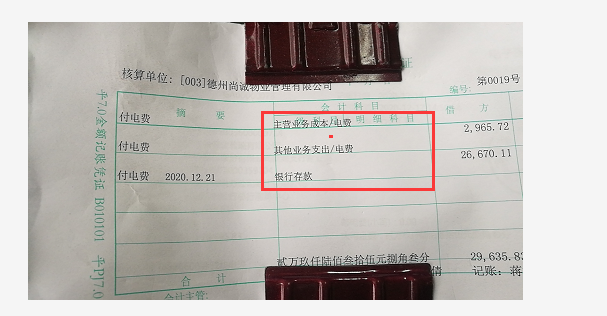 证
核算单位: [003]德州尚诚物业管理有限公司
编号: 第0019号
摘 要
会 计 科 目
借 方
明 细 科 目
付电费
主营业务成本/电费
2,965.72
付电费
其他业务支出/电费
26,670.11
付电费 2020.12.21
银行存款
贰万玖仟陆佰叁拾伍元捌角叁分
29,635.8
合 计
记账: 蒋
会计主管:
金额记账凭证 B010101